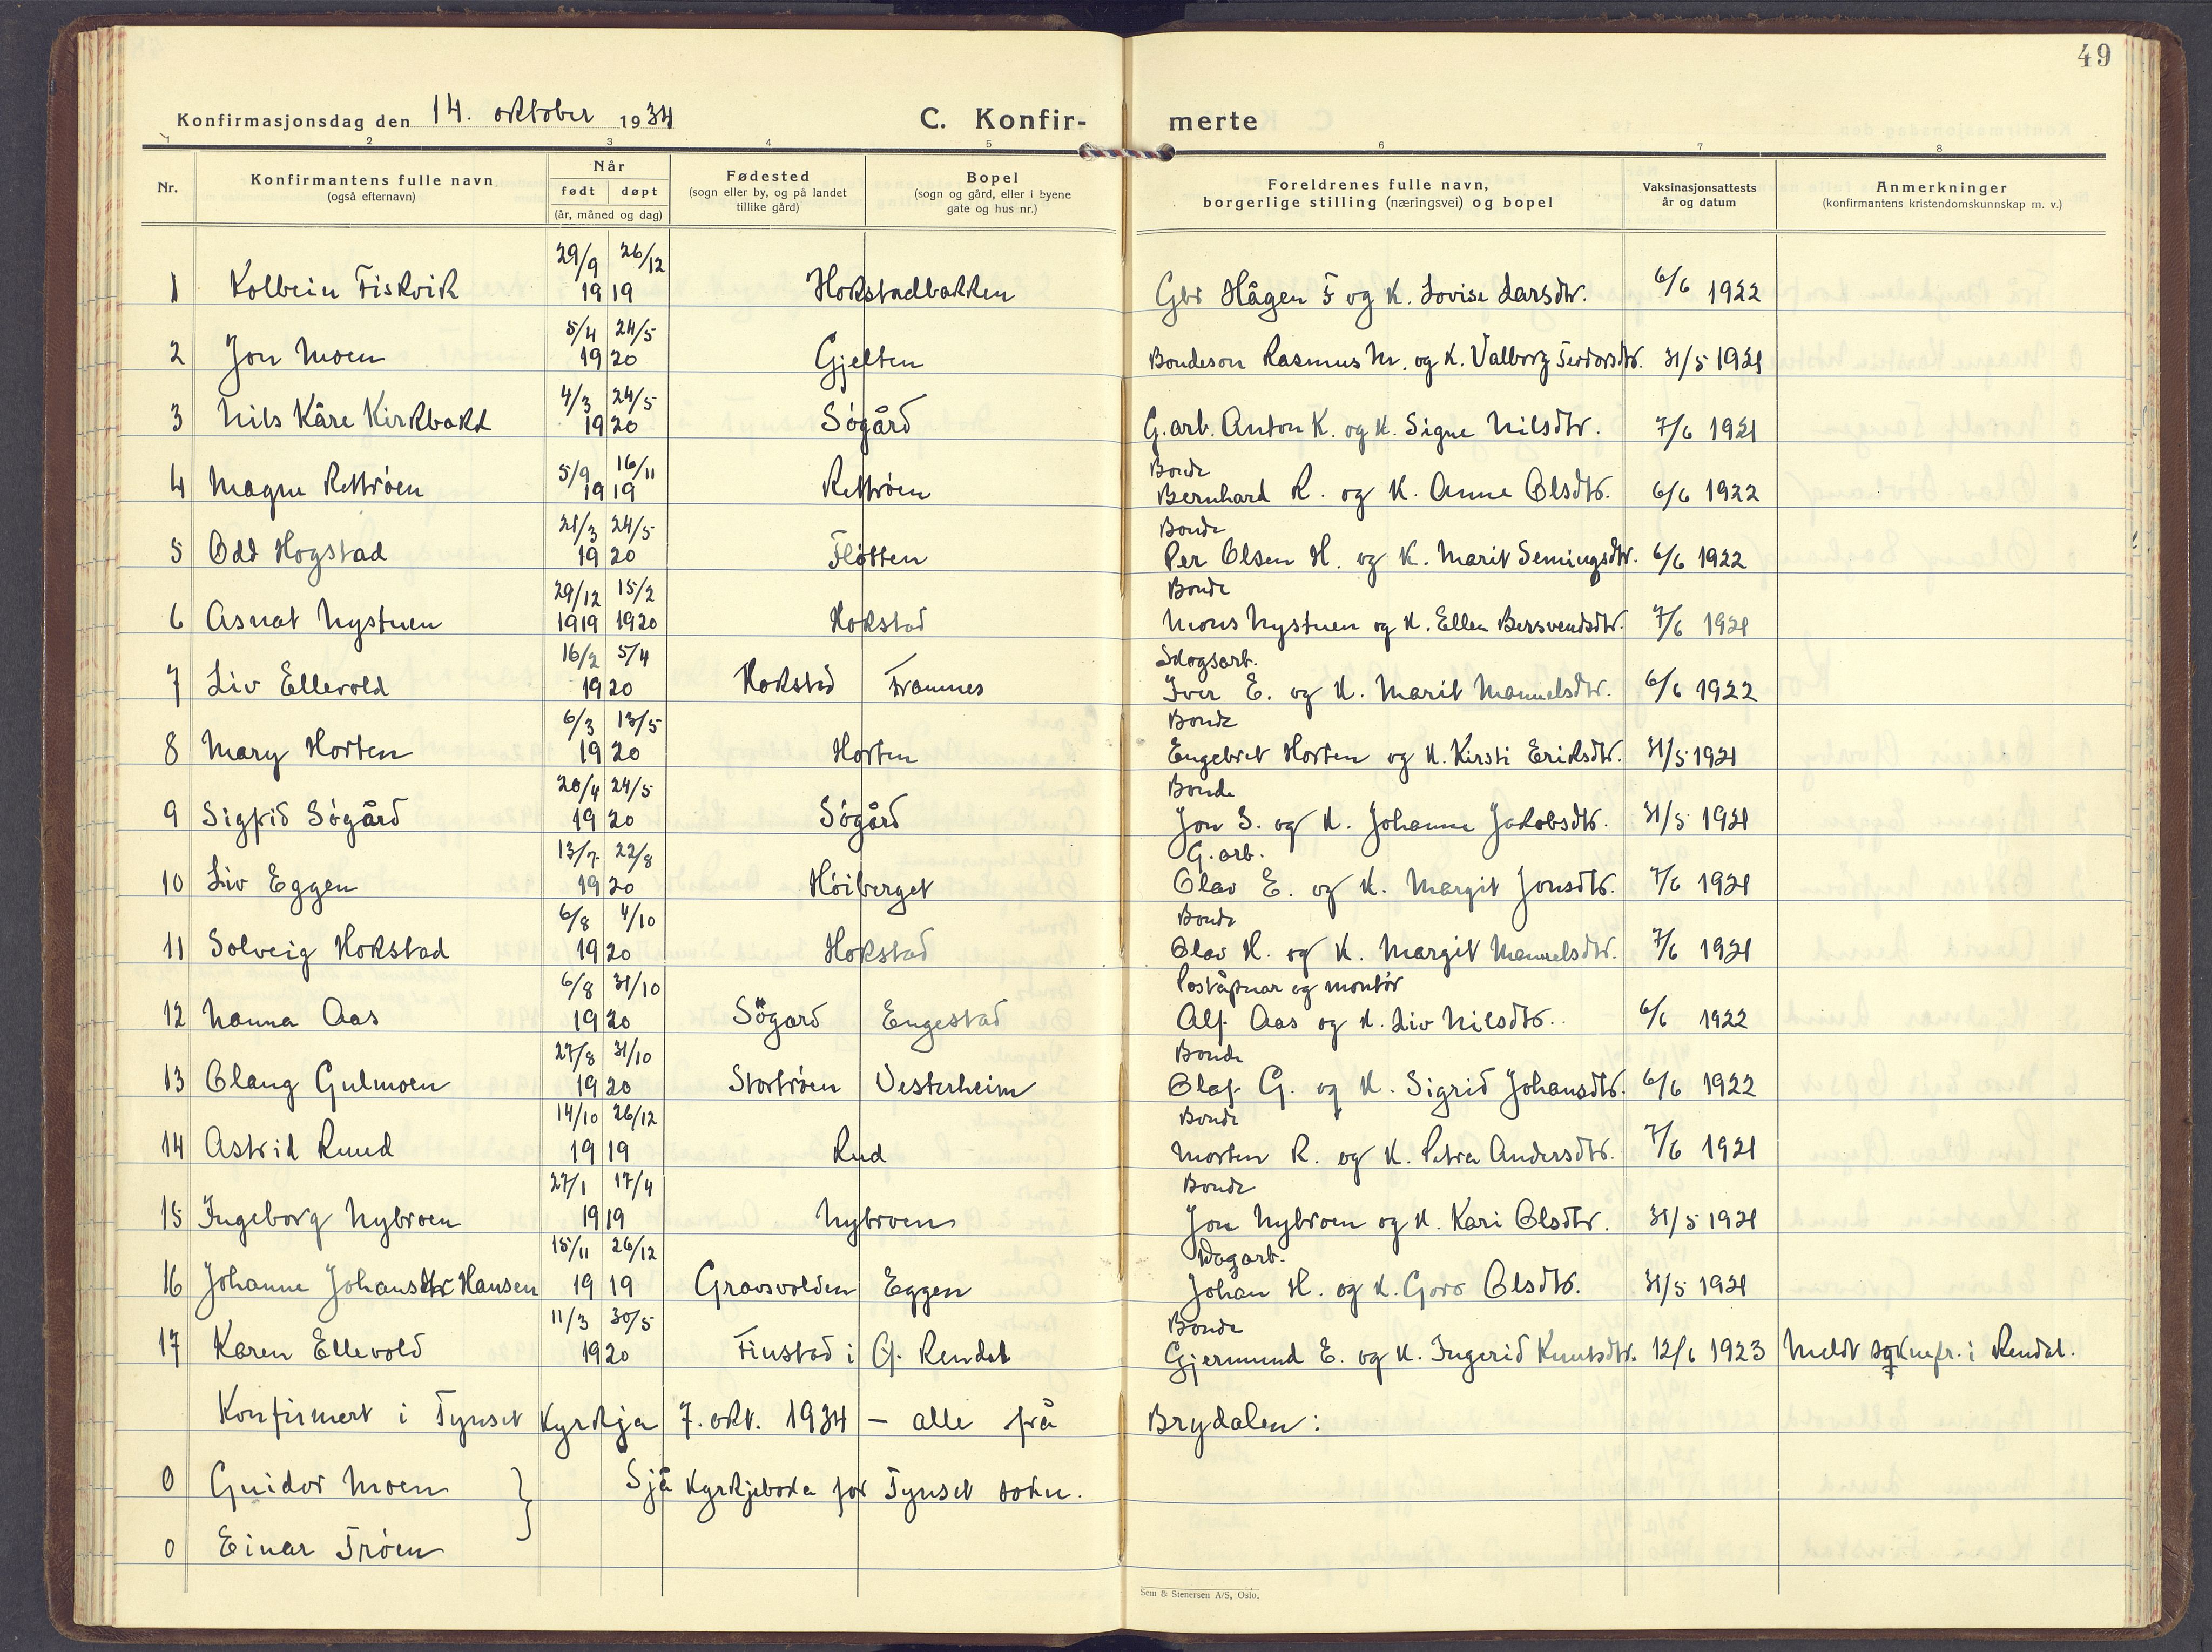 49
Konfirmasjonsdag den 14. oktober 1934 C. Konfir- merte
1 2 3 4 5 6 7 8
Nr. Konfirmantens fulle navn (også efternavn) Når født døpt (år, måned og dag) Fødested (sogn eller by, og på landet tillike gård) Bopel (sogn og gård, eller i byene gate og hus nr.) Foreldrenes fulle navn, borgerlige stilling (næringsvei) og bopel Vaksinasjonsattests år og datum Anmerkninger (konfirmantens kristendomskunnskap m. v.)
29/9 26/12
1 Kolbein Fiskvik 1919 Hokstadbakken Gbr Hågen F og K. Lovise Larsdtr. 6/6 1922
5/4 24/5
2 Jon Moen 1920 Gjelten Bondeson Rasmus M. og K. Valborg 31/5 1921
4/3 24/5
3 Nils Kåre Kirkbakk 1920 Søgård G.arb. Anton K. og K. Signe Nilsdtr. 7/6 1921
5/9 16/11 Bonde
4 Magne Rettrøen 1919 Rettrøen Bernhard R. og K. Anne Olsdtr. 6/6 1922
21/3 24/5 Bonde
5 Odd Hogstad 1920 Fløtten Per Olsen H. og K. Marit Semingsdtr. 6/6 1922
29/12 15/2 Bonde
6 Asnat Nystuen 1919 1920 Hokstad Mons Nystuen og K. Ellen Bersvendsdtr. 7/6 1921
16/2 5/4 Skogsarb.
7 Liv Ellevold 1920 Hokstad Framnes Iver E. og K. Marit Manuelsdtr. 6/6 1922
6/3 13/5 Bonde
8 Mary Horten 1920 Horten Engebret Horten og K. Kirsti Eriksdtr. 31/5 1921
20/4 24/5 Bonde
9 Sigfrid Søgård 1920 Søgård Jon S. og K. Johanne Jakobsdtr. 31/5 1921
13/7 22/8 G.arb.
10 Liv Eggen 1920 Høiberget Olav E. og K. Margit Jonsdtr. 7/6 1921
6/8 4/10 Bonde
11 Solveig Hokstad 1920 Hokstad Olav H. og K. Margit Manuelsdtr. 7/6 1921
6/8 31/10 Poståpnar og montør
12 Nanna Aas 1920 Søgard Engestad Alf Aas og K. Liv Nilsdtr. 6/6 1922
27/8 31/10 Bonde
13 Olaug Gulmoen 1920 Stortrøen Vesterheim Olaf G. og K. Sigrid Johansdtr. 6/6 1922
14/10 26/12 Bonde
14 Astrid Ruud 1919 Rud Morten R. og K. Petra Andersdtr. 7/6 1921
27/1 17/4 Bonde
15 Ingeborg Nybroen 1919 Nybroen Jon Nybroen og K. Kari Olsdtr. 31/5 1921
15/11 26/12
16 Johanne Johansdtr Hansen 1919 Eggen Johan H. og K. Goro Olsdtr. 31/5 1921
11/3 30/5 Bonde
17 Karen Ellevold 1920 Finstad i Ø. Rendal Gjermund E. og K. Ingerid Knutsdtr. 12/6 1923 Meldt soknepr. i Rendal.
Konfirmert i Tynset Kyrkja 7. okt. 1934 – alle frå Brydalen:
0 Guidor Moen } Sjå Kyrkjeboka for Tynset sokn.
0 Einar Trøen
Sem & Stenersen A/S, Oslo.